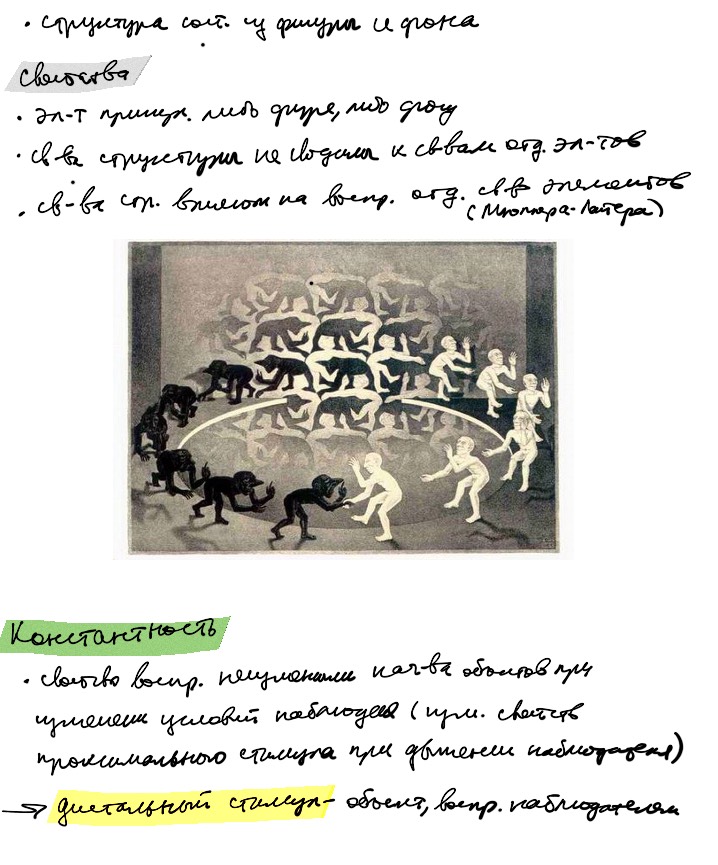 • структура сост. из фигуры и фона
свойства
• эл-т принцк. либо фигуре, либо фону
• св-ва структуры не сводимы к св-вам отд. эл-тов
• св-ва стр. влияют на воспр. отд. св-в элементов
(Мюллера-Лайера)
Константность
• свойство воспр. кач-ва объектов при
изменении условий наблюдения (изм. свойств
проксимального стимула при движении наблюдателя)
→ дистальный стимул - объект, воспр. наблюдателем